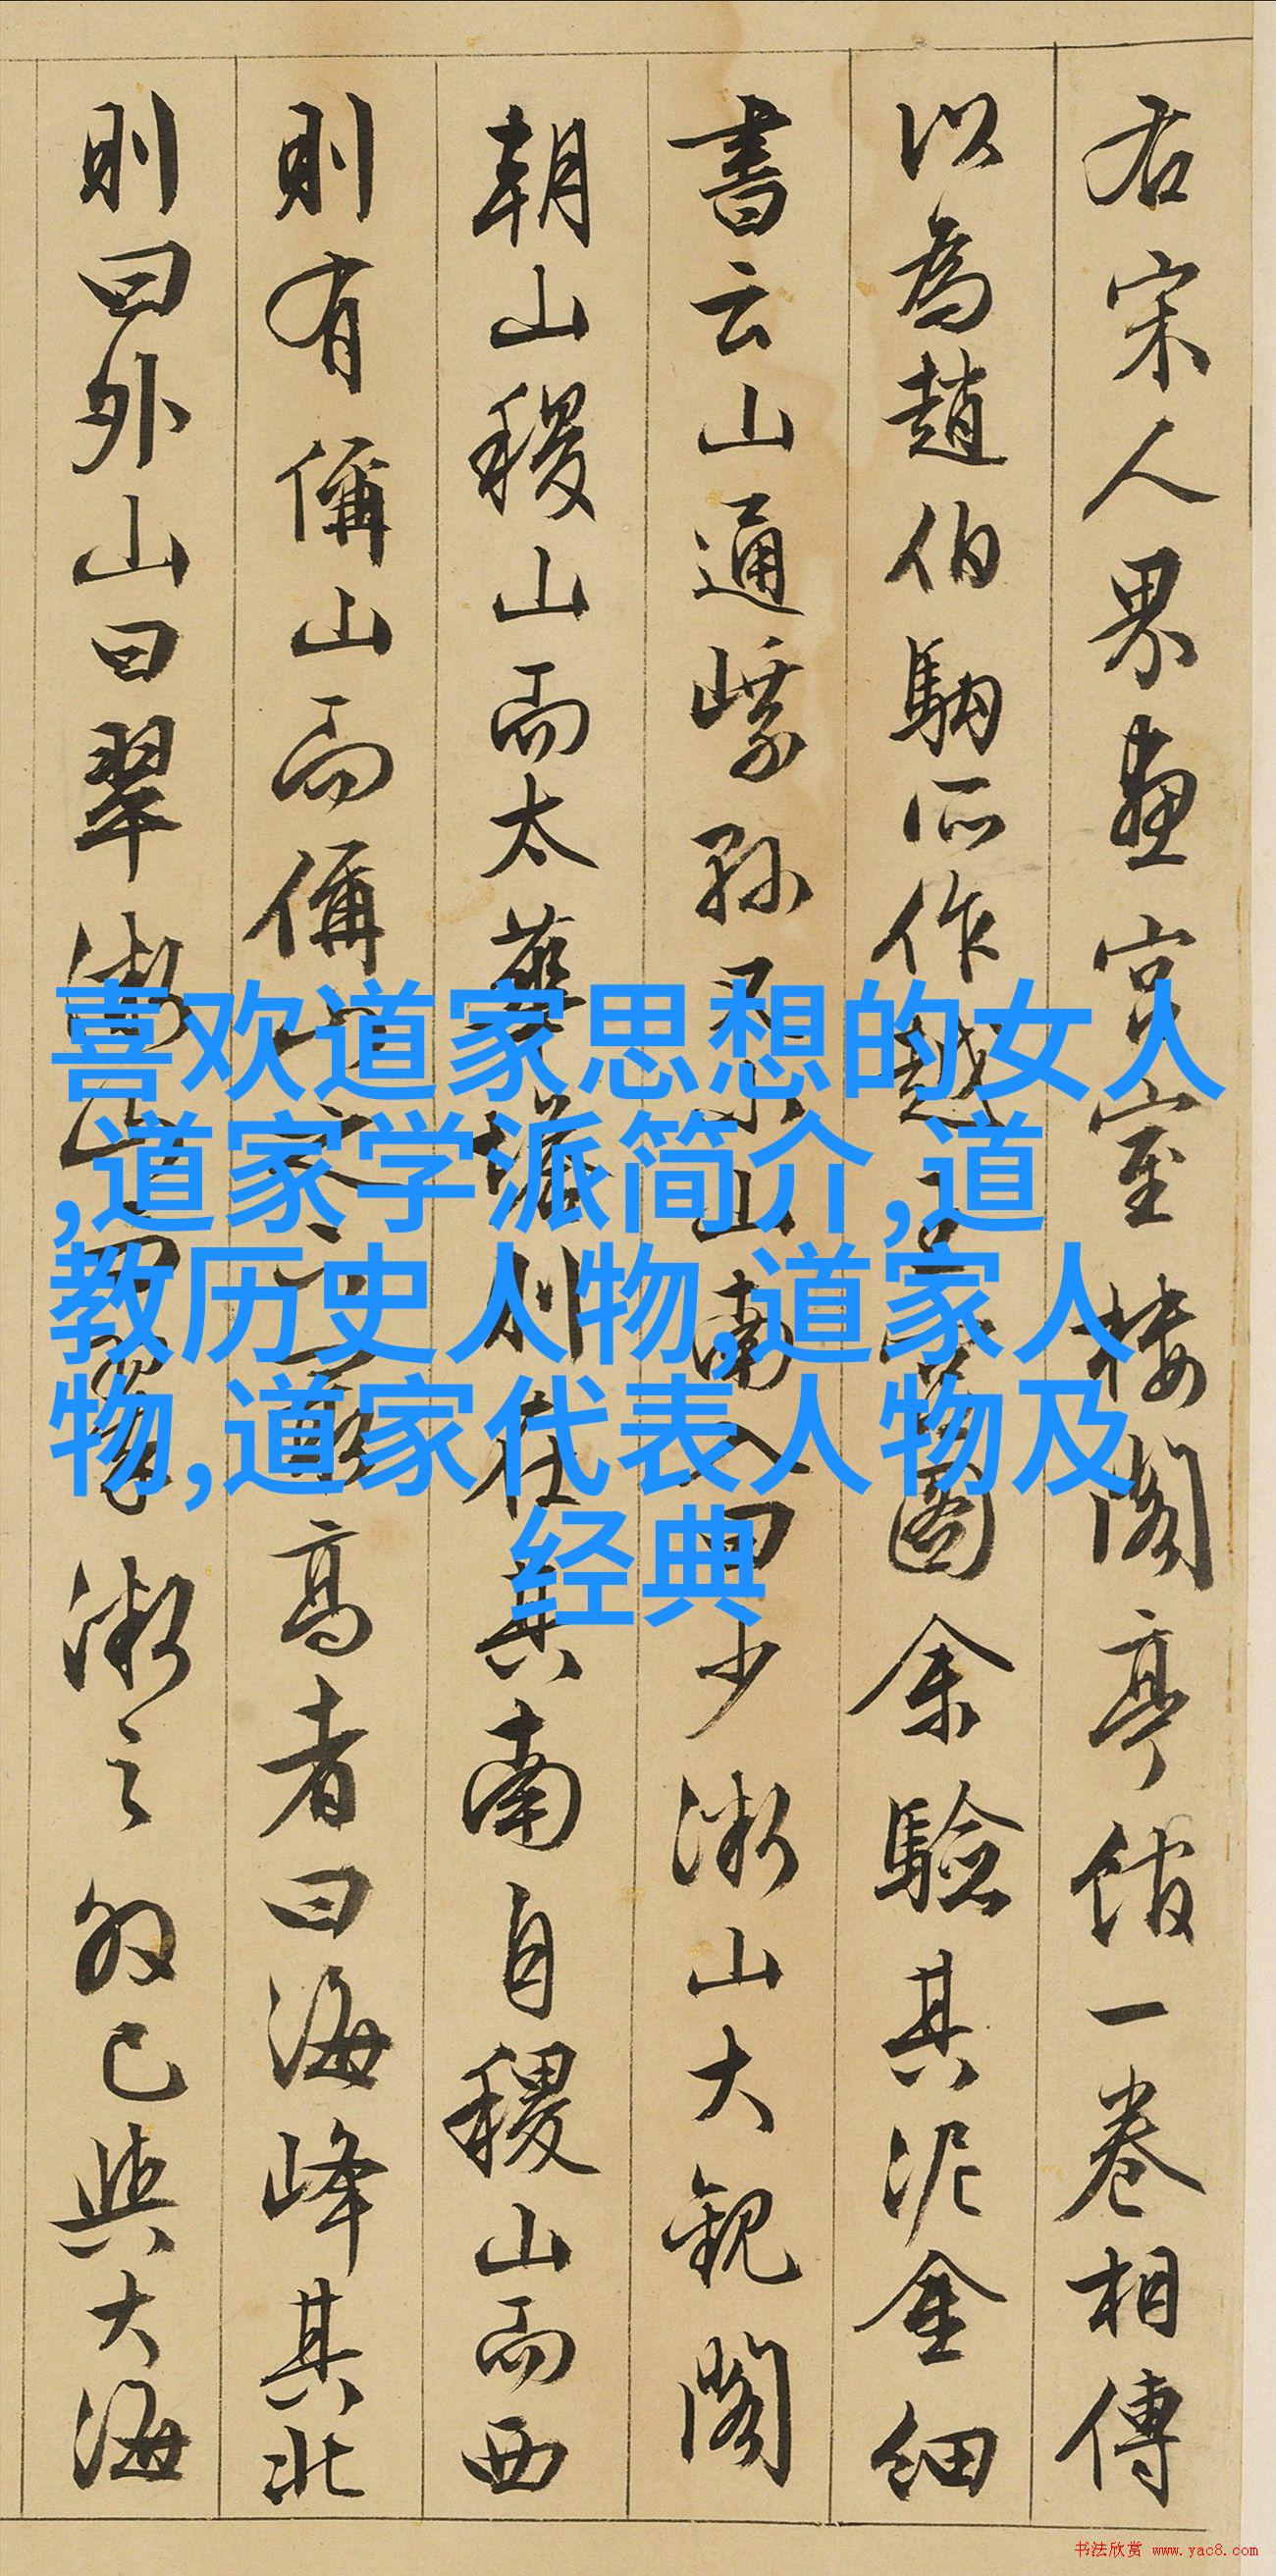 右宋人界畫宮室樓閣亭館一卷相傳
以為趙伯駒所作越 圖余驗其泥金細
書云山通 孫 山南 曰少微山大觀閣
朝山稷山而太華 在其南自稷山而西
則有偁山而偁山 高者曰海峰其北
則曰外山曰翠微山 曰 微之 已與大海
喜欢道家思想的女人
,道家学派简介,道
教历史人物,道家人
物,道家代表人物及
经典
书法欣赏 www.yac8.com